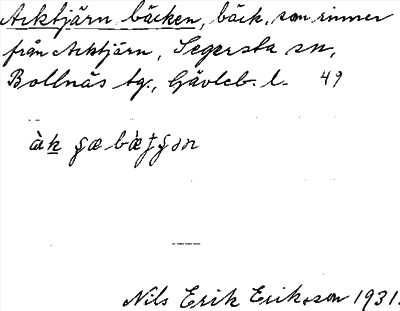 Acktjärn bäcken, bäck, som rinner
från Acktjärn, Segersta sn,
Bollnäs tg., Gävleb. l. 49
Nils Erik Eriksson 1931.